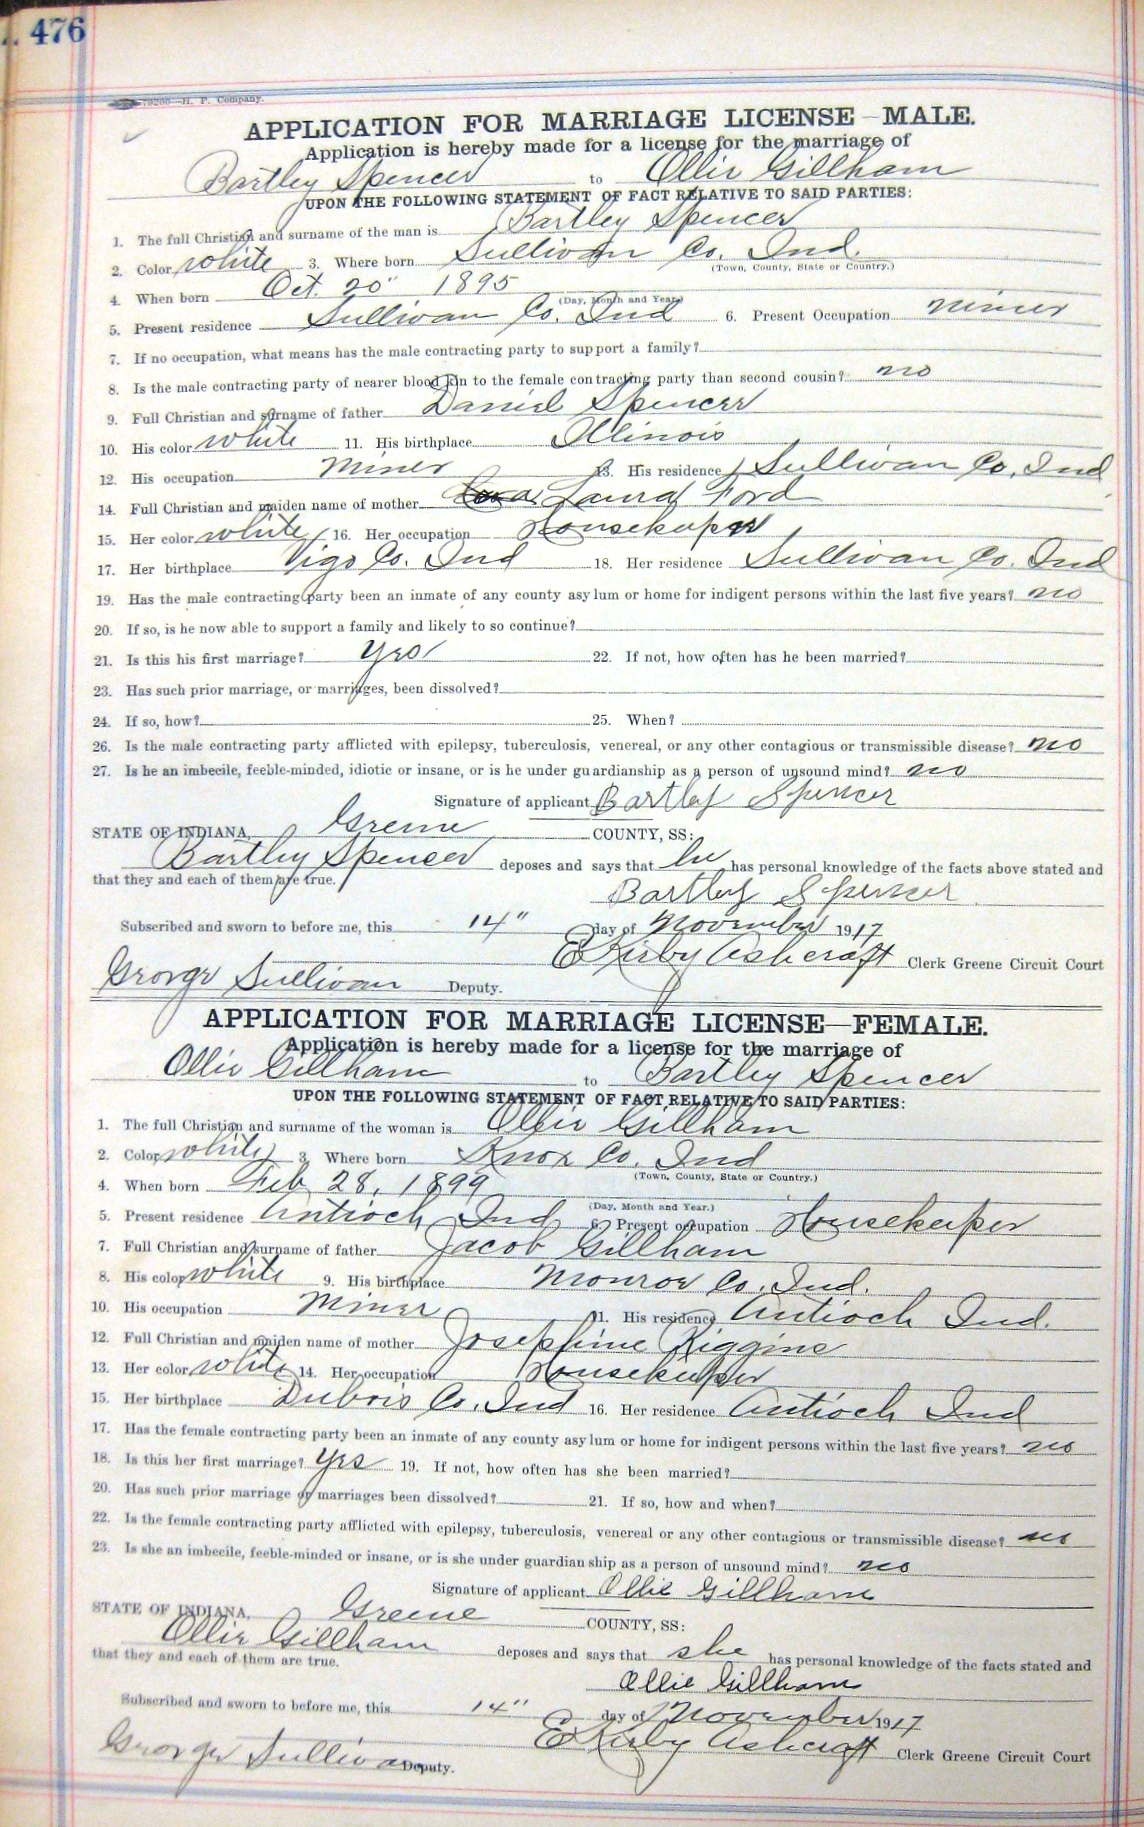 476
79200—H. P. Company.
APPLICATION FOR MARRIAGE LICENSE—MALE.
Application is hereby made for a license for the marriage of
Bartley Spencer to Ollie Gillham
UPON THE FOLLOWING STATEMENT OF FACT RELATIVE TO SAID PARTIES:
1. The full Christian and surname of the man is Bartley Spencer
2. Color white 3. Where born Sullivan Co. Ind.
(Town, County, State or Country.)
4. When born Oct. 20" 1895
(Day, Month and Year)
5. Present residence Sullivan Co. Ind 6. Present Occupation Miner
7. If no occupation, what means has the male contracting party to support a family?
8. Is the male contracting party of nearer blood kin to the female contracting party than second cousin? no
9. Full Christian and surname of father Daniel Spencer
10. His color white 11. His birthplace Illinois
12. His occupation Miner 13. His residence Sullivan Co. Ind
14. Full Christian and maiden name of mother Laura Ford
15. Her color white 16. Her occupation Housekeeper
17. Her birthplace Vigo Co. Ind 18. Her residence Sullivan Co. Ind
19. Has the male contracting party been an inmate of any county asylum or home for indigent persons within the last five years? no
20. If so, is he now able to support a family and likely to so continue?
21. Is this his first marriage? yes 22. If not, how often has he been married?
23. Has such prior marriage, or marriages, been dissolved?
24. If so, how? 25. When?
26. Is the male contracting party afflicted with epilepsy, tuberculosis, venereal, or any other contagious or transmissible disease? no
27. Is he an imbecile, feeble-minded, idiotic or insane, or is he under guardianship as a person of unsound mind? no
Signature of applicant Bartley Spencer
STATE OF INDIANA, Greene COUNTY, SS:
Bartley Spencer deposes and says that he has personal knowledge of the facts above stated and
that they and each of them are true.
Bartley Spencer
Subscribed and sworn to before me, this 14" day of November 1917
E Kirby Ashcraft Clerk Greene Circuit Court
George Sullivan Deputy.
APPLICATION FOR MARRIAGE LICENSE—FEMALE.
Application is hereby made for a license for the marriage of
Ollie Gillham to Bartley Spencer
UPON THE FOLLOWING STATEMENT OF FACT RELATIVE TO SAID PARTIES:
1. The full Christian and surname of the woman is Ollie Gillham
2. Color white 3. Where born Knox Co. Ind
(Town, County, State or Country.)
4. When born Feb 28, 1899
(Day, Month and Year.)
5. Present residence Antioch Ind 6. Present occupation Housekeeper
7. Full Christian and surname of father Jacob Gillham
8. His color white 9. His birthplace Monroe Co. Ind.
10. His occupation Miner 11. His residence Antioch Ind.
12. Full Christian and maiden name of mother Josephine Riggins
13. Her color white 14. Her occupation Housekeeper
15. Her birthplace Dubois Co. Ind 16. Her residence Antioch Ind
17. Has the female contracting party been an inmate of any county asylum or home for indigent persons within the last five years? no
18. Is this her first marriage? yes 19. If not, how often has she been married?
20. Has such prior marriage or marriages been dissolved? 21. If so, how and when?
22. Is the female contracting party afflicted with epilepsy, tuberculosis, venereal or any other contagious or transmissible disease? no
23. Is she an imbecile, feeble-minded or insane, or is she under guardianship as a person of unsound mind? no
Signature of applicant Ollie Gillham
STATE OF INDIANA, Greene COUNTY, SS:
Ollie Gillham deposes and says that she has personal knowledge of the facts stated and
that they and each of them are true.
Ollie Gillham
Subscribed and sworn to before me, this 14" day of November 1917
E Kirby Ashcraft Clerk Greene Circuit Court
George Sullivan Deputy.